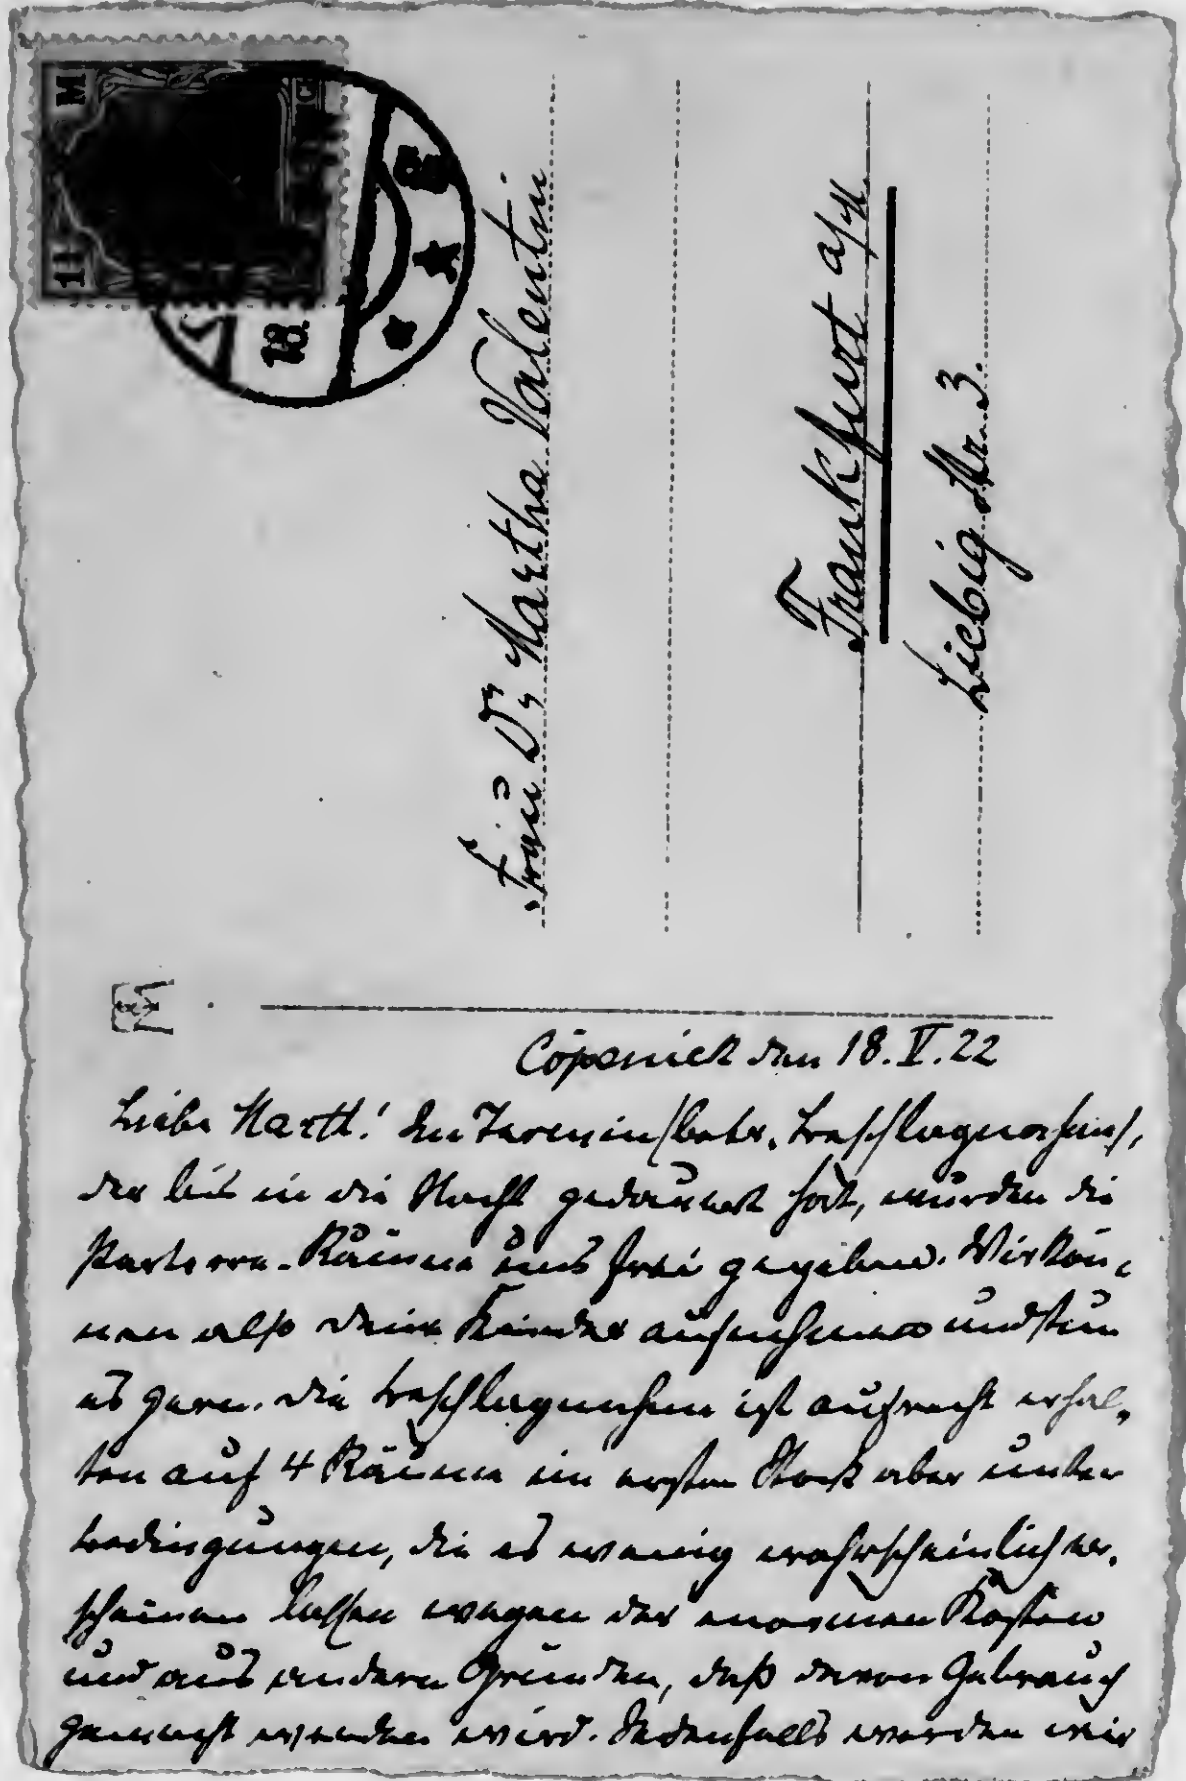 1¼ M
18.
Frau Dr Martha Valentin
Frankfurt a/M.
Liebig Str. 3.
Cöpenick den 18. V. 22
Liebe Marth! Im Termin (betr. Beschlagnahme),
der bis in die Nacht gedauert hat, wurden die
Parterre-Räume uns frei gegeben. Wir kön-
nen also deine Kinder aufnehmen und tun
es gern. Die Beschlagnahme ist aufrecht erhal-
ten auf 4 Räume im ersten Stock aber unter
Bedingungen, die es wenig wahrscheinlich er-
scheinen lassen wegen der enormen Kosten
und aus andern Gründen, daß davon Gebrauch
gemacht werden wird. Jedenfalls werden wir